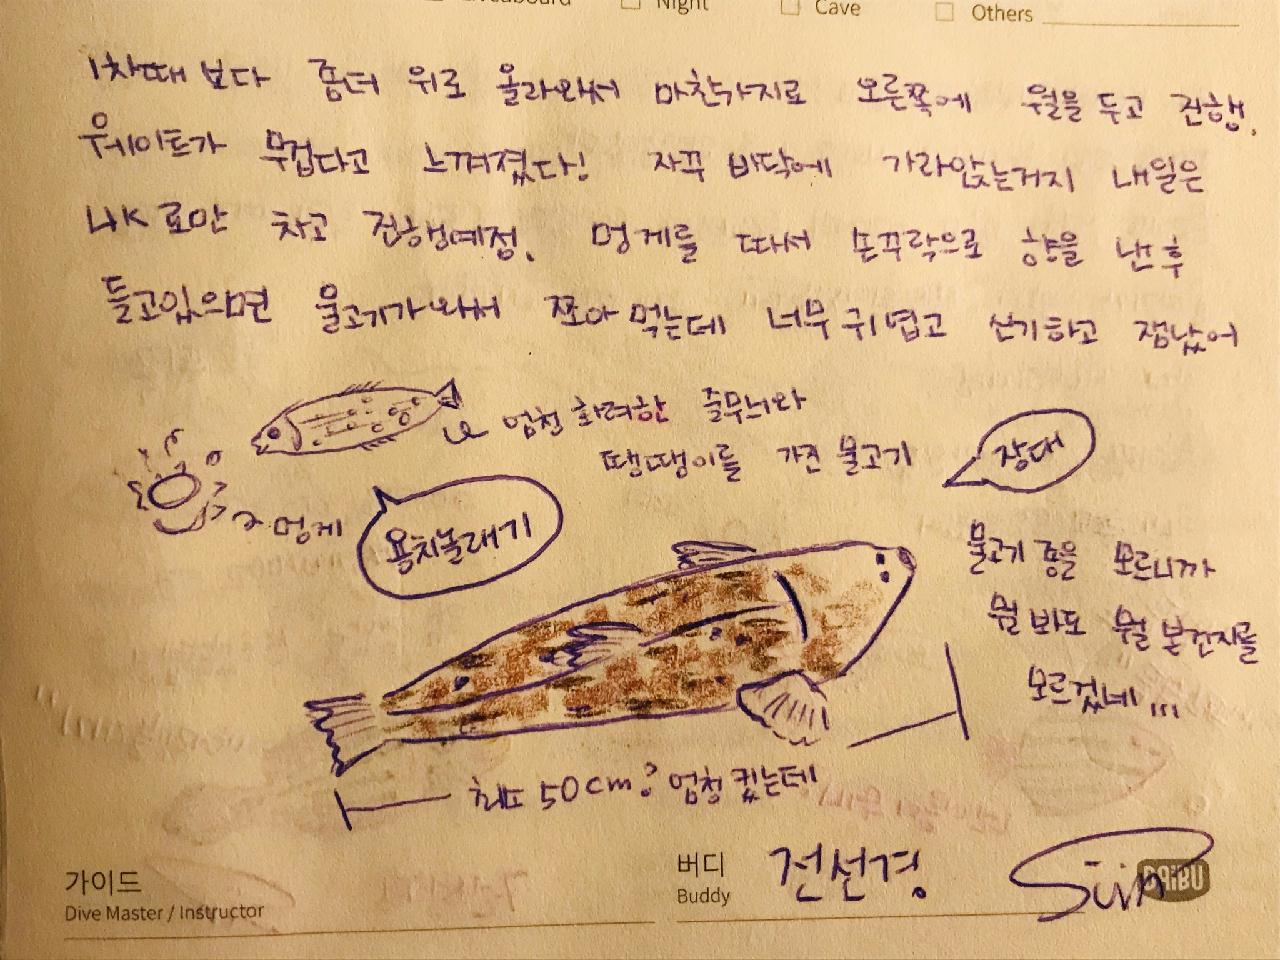 Night □ Cave □ Others
1차때 보다 좀더 위로 올라와서 마찬가지로 오른쪽에 월을 두고 진행.
웨이트가 무겁다고 느껴졌다! 자꾸 바닥에 가라앉는거지 내일은
4K로만 차고 진행예정. 멍게를 따서 손꾸락으로 향을 낸 후
들고있으면 물고기가 와서 쪼아 먹는데 너무 귀엽고 신기하고 잼났어
엄청 화려한 줄무늬와
땡땡이를 가진 물고기
장대
멍게
용치놀래기
물고기 종을 모르니까
뭘 봐도 뭘 본건지를
모르겠네...
체고 50cm? 엄청 컸는데
가이드
Dive Master / Instructor
버디
Buddy
전선경
DAiBU